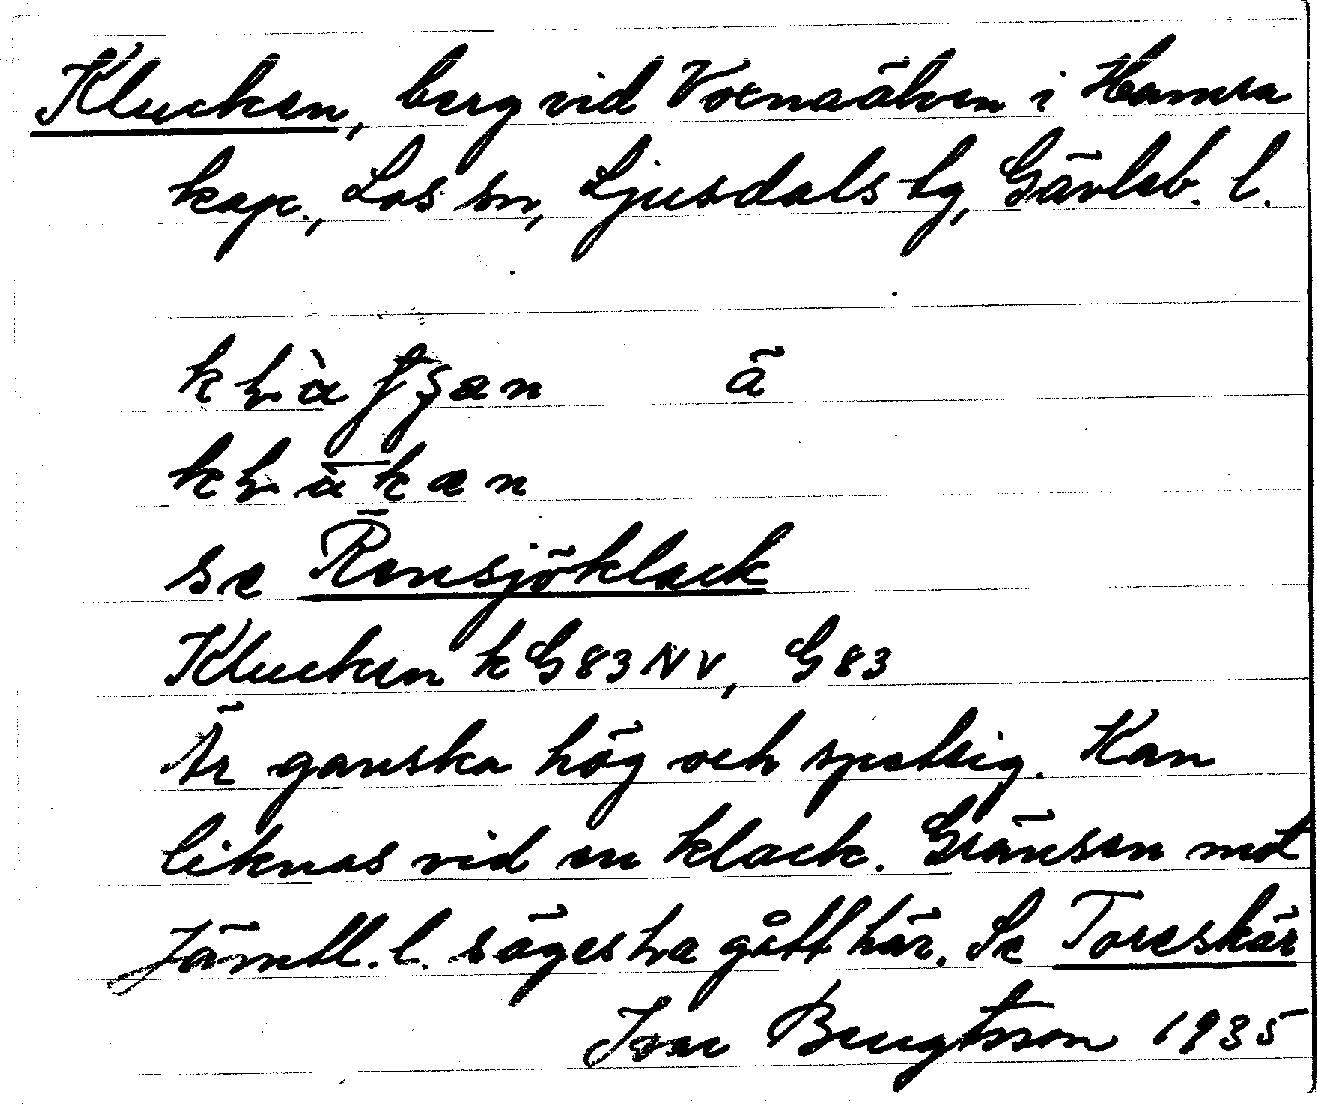 Klucken, berg vid Voxnaälven i Hamra
kap., Los sn, Ljusdals tg, Gävleb. l.
ä
se Rensjöklack
Klucken k G83NV, G83
Är ganska hög och spetsig. Kan
liknas vid en klack. Gränsen mot
Jämtl. l. säges ha gått här. Se Toreskär
Ivar Bengtsson 1935